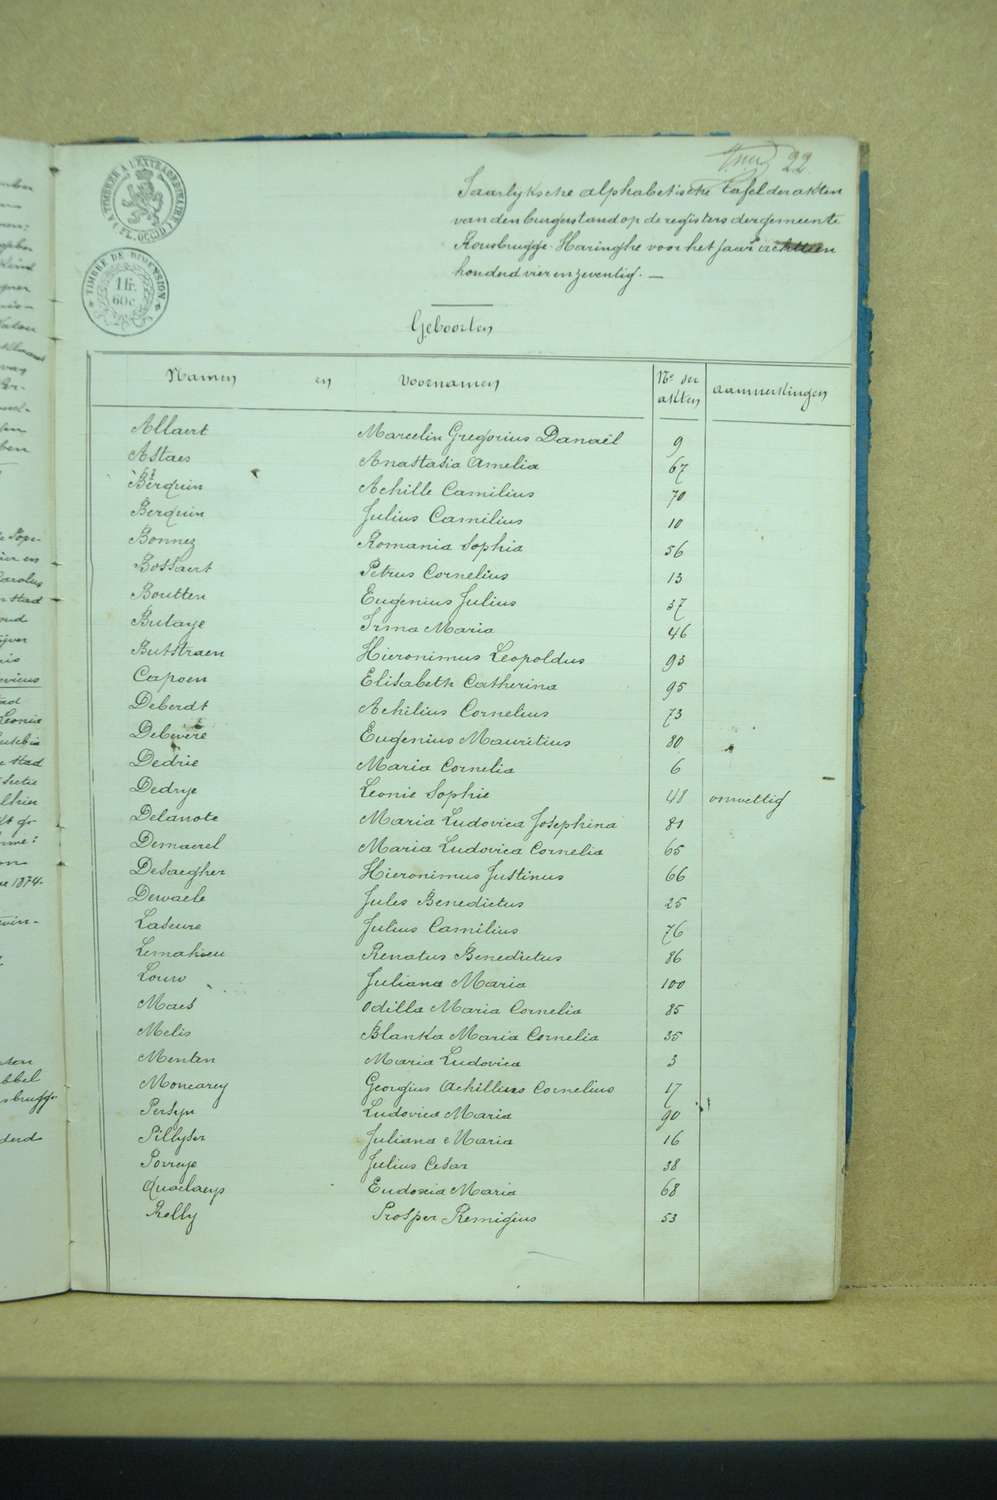 22
Jaarlyksche alphabetische tafel der akten
van den burgerstand op de registers der gemeente
Rousbrugge-Haringhe voor het jaar achttien
honderd vier en zeventig. —
TIMBRE A L'EXTRAORDINAIRE
(FL. OCCID.)
TIMBRE DE DIMENSION
1 fr. 60c.
Geboorten
Namen en Voornamen Nr der akten aanmerkingen
Allaert Marcelin Gregorius Danaël 9
Astaes Anastasia Amelia 67
Berquin Achille Camilius 70
Berquin Julius Camilius 10
Bonnez Romania Sophia 56
Bossaert Petrus Cornelius 13
Boutten Eugenius Julius 37
Butaye Irma Maria 46
Butstraen Hieronimus Leopoldus 93
Capoen Elisabeth Catherina 95
Deberdt Achilius Cornelius 73
Debevere Eugenius Mauritius 80
Dedrie Maria Cornelia 6
Dedrye Leonie Sophie 48 onwettig
Delanote Maria Ludovica Josephina 81
Demaerel Maria Ludovica Cornelia 65
Desaegher Hieronimus Justinus 66
Dewaele Jules Benedictus 25
Laseure Julius Camilius 76
Lemahieu Renatus Benedictus 86
Louw Juliana Maria 100
Maes Odilla Maria Cornelia 85
Melis Blanka Maria Cornelia 35
Menten Maria Ludovica 3
Moncarey Georgius Achillius Cornelius 17
Persyn Ludovica Maria 90
Pillyser Juliana Maria 16
Povreye Julius Cesar 38
Quaelaeys Eudoxia Maria 68
Relly Prosper Remigius 53